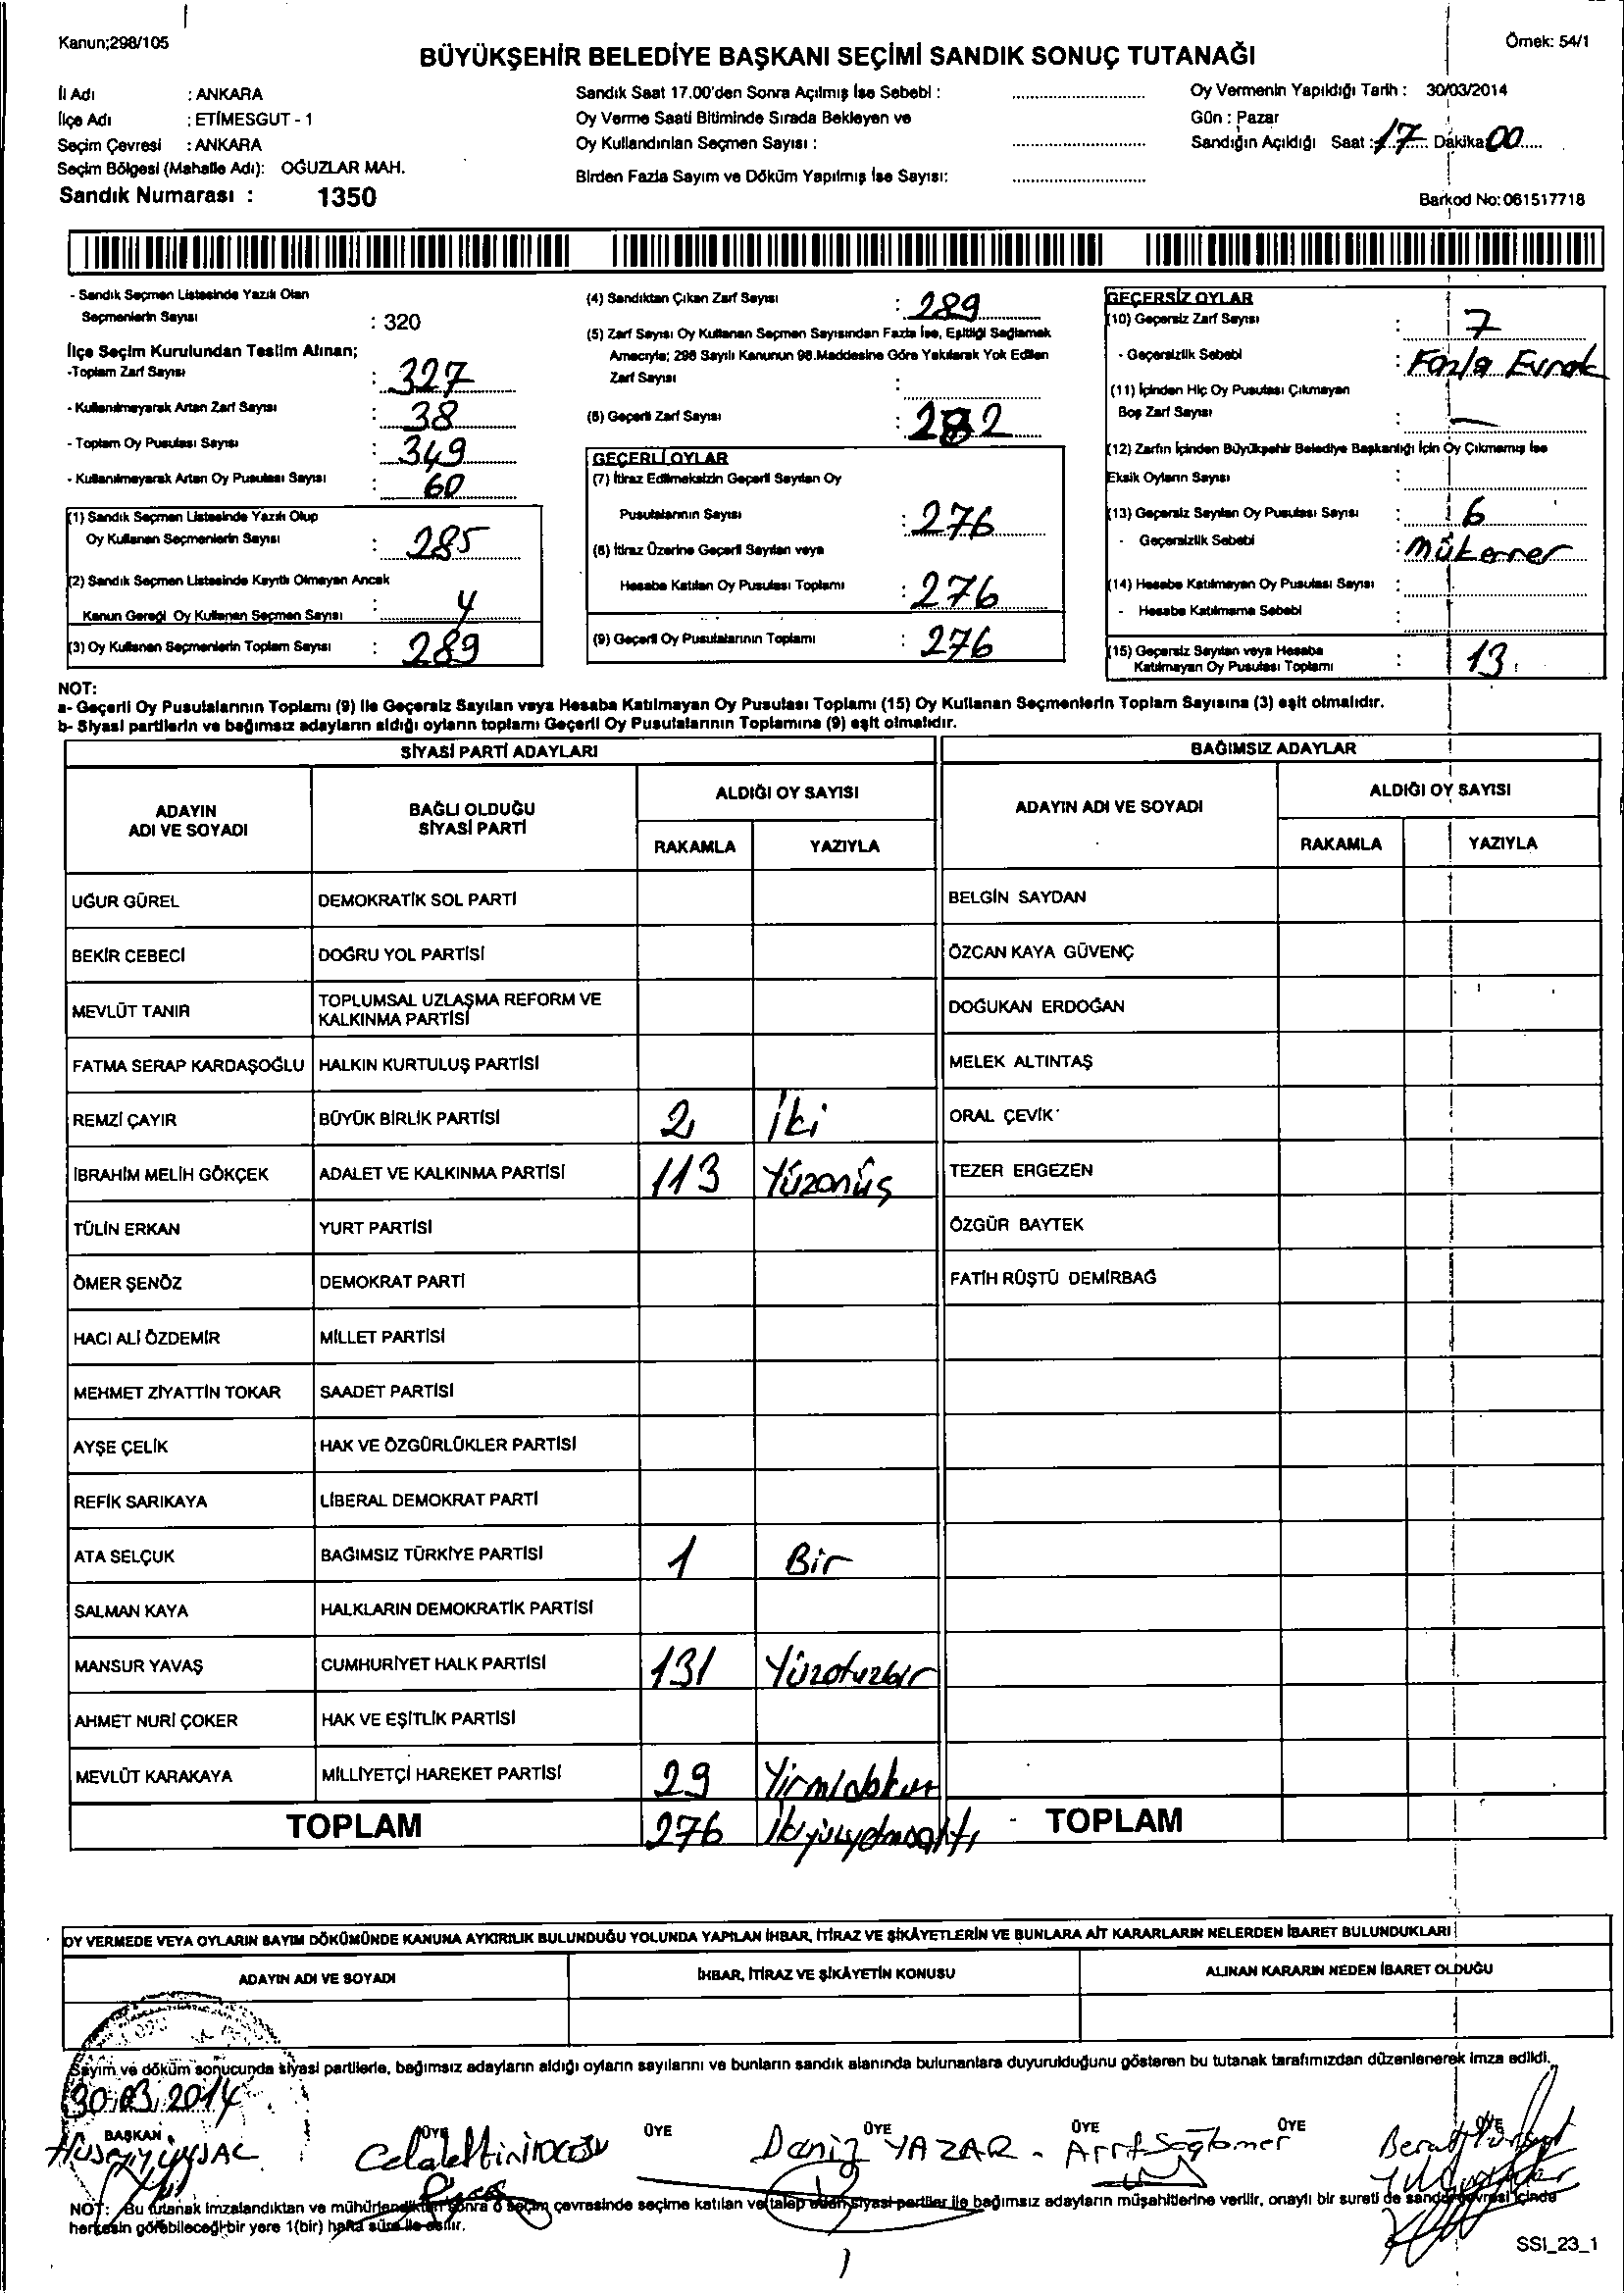 Kanun;298/105
Örnek: 54/1
BÜYÜKŞEHİR BELEDİYE BAŞKANI SEÇİMİ SANDIK SONUÇ TUTANAĞI
İl Adı : ANKARA
İlçe Adı : ETİMESGUT - 1
Seçim Çevresi : ANKARA
Seçim Bölgesi (Mahalle Adı): OĞUZLAR MAH.
Sandık Numarası : 1350
Sandık Saat 17.00'den Sonra Açılmış İse Sebebi :
Oy Verme Saati Bitiminde Sırada Bekleyen ve
Oy Kullandırılan Seçmen Sayısı :
Birden Fazla Sayım ve Döküm Yapılmış İse Sayısı:
Oy Vermenin Yapıldığı Tarih : 30/03/2014
Gün : Pazar
Sandığın Açıldığı Saat : 17 Dakika 00
Barkod No: 061517718
- Sandık Seçmen Listesinde Yazılı Olan
Seçmenlerin Sayısı : 320
İlçe Seçim Kurulundan Teslim Alınan;
-Toplam Zarf Sayısı : 327
- Kullanılmayarak Artan Zarf Sayısı : 38
- Toplam Oy Pusulası Sayısı : 349
- Kullanılmayarak Artan Oy Pusulası Sayısı : 60
(1) Sandık Seçmen Listesinde Yazılı Olup
Oy Kullanan Seçmenlerin Sayısı : 285
(2) Sandık Seçmen Listesinde Kayıtlı Olmayan Ancak
Kanun Gereği Oy Kullanan Seçmen Sayısı : 4
(3) Oy Kullanan Seçmenlerin Toplam Sayısı : 289
(4) Sandıktan Çıkan Zarf Sayısı : 289
(5) Zarf Sayısı Oy Kullanan Seçmen Sayısından Fazla İse, Eşitliği Sağlamak
Amacıyla; 298 Sayılı Kanunun 98.Maddesine Göre Yakılarak Yok Edilen
Zarf Sayısı :
(6) Geçerli Zarf Sayısı : 282
GEÇERLİ OYLAR
(7) İtiraz Edilmeksizin Geçerli Sayılan Oy
Pusulalarının Sayısı : 276
(8) İtiraz Üzerine Geçerli Sayılan veya
Hesaba Katılan Oy Pusulası Toplamı : 276
(9) Geçerli Oy Pusulalarının Toplamı : 276
GEÇERSİZ OYLAR
(10) Geçersiz Zarf Sayısı : 7
- Geçersizlik Sebebi : Fazla Evrak
(11) İçinden Hiç Oy Pusulası Çıkmayan
Boş Zarf Sayısı : —
(12) Zarfın İçinden Büyükşehir Belediye Başkanlığı İçin Oy Çıkmamış İse
Eksik Oyların Sayısı :
(13) Geçersiz Sayılan Oy Pusulası Sayısı : 6
- Geçersizlik Sebebi : Mükerrer
(14) Hesaba Katılmayan Oy Pusulası Sayısı :
- Hesaba Katılmama Sebebi :
(15) Geçersiz Sayılan veya Hesaba
Katılmayan Oy Pusulası Toplamı : 13
NOT:
a- Geçerli Oy Pusulalarının Toplamı (9) ile Geçersiz Sayılan veya Hesaba Katılmayan Oy Pusulası Toplamı (15) Oy Kullanan Seçmenlerin Toplam Sayısına (3) eşit olmalıdır.
b- Siyasi partilerin ve bağımsız adayların aldığı oyların toplamı Geçerli Oy Pusulalarının Toplamına (9) eşit olmalıdır.
SİYASİ PARTİ ADAYLARI BAĞIMSIZ ADAYLAR
ADAYIN
ADI VE SOYADI
BAĞLI OLDUĞU
SİYASİ PARTİ
ALDIĞI OY SAYISI
RAKAMLA YAZIYLA
ADAYIN ADI VE SOYADI
ALDIĞI OY SAYISI
RAKAMLA YAZIYLA
UĞUR GÜREL DEMOKRATİK SOL PARTİ BELGİN SAYDAN
BEKİR CEBECİ DOĞRU YOL PARTİSİ ÖZCAN KAYA GÜVENÇ
MEVLÜT TANIR TOPLUMSAL UZLAŞMA REFORM VE
KALKINMA PARTİSİ DOĞUKAN ERDOĞAN
FATMA SERAP KARDAŞOĞLU HALKIN KURTULUŞ PARTİSİ MELEK ALTINTAŞ
REMZİ ÇAYIR BÜYÜK BİRLİK PARTİSİ 2 İki ORAL ÇEVİK
İBRAHİM MELİH GÖKÇEK ADALET VE KALKINMA PARTİSİ 113 Yüzonüş TEZER ERGEZEN
TÜLİN ERKAN YURT PARTİSİ ÖZGÜR BAYTEK
ÖMER ŞENÖZ DEMOKRAT PARTİ FATİH RÜŞTÜ DEMİRBAĞ
HACI ALİ ÖZDEMİR MİLLET PARTİSİ
MEHMET ZİYATTİN TOKAR SAADET PARTİSİ
AYŞE ÇELİK HAK VE ÖZGÜRLÜKLER PARTİSİ
REFİK SARIKAYA LİBERAL DEMOKRAT PARTİ
ATA SELÇUK BAĞIMSIZ TÜRKİYE PARTİSİ 1 Bir
SALMAN KAYA HALKLARIN DEMOKRATİK PARTİSİ
MANSUR YAVAŞ CUMHURİYET HALK PARTİSİ 131 Yüzotuzbir
AHMET NURİ ÇOKER HAK VE EŞİTLİK PARTİSİ
MEVLÜT KARAKAYA MİLLİYETÇİ HAREKET PARTİSİ 29 Yirmidokuz
TOPLAM 276 İkiyüzyetmişaltı TOPLAM
OY VERMEDE VEYA OYLARIN SAYIM DÖKÜMÜNDE KANUNA AYKIRILIK BULUNDUĞU YOLUNDA YAPILAN İHBAR, İTİRAZ VE ŞİKÂYETLERİN VE BUNLARA AİT KARARLARIN NELERDEN İBARET BULUNDUKLARI
ADAYIN ADI VE SOYADI İHBAR, İTİRAZ VE ŞİKÂYETİN KONUSU ALINAN KARARIN NEDEN İBARET OLDUĞU
Sayım ve döküm sonucunda siyasi partilerle, bağımsız adayların aldığı oyların sayılarını ve bunların sandık alanında bulunanlara duyurulduğunu gösteren bu tutanak tarafımızdan düzenlenerek imza edildi.
30.03.2014
BAŞKAN ÜYE ÜYE ÜYE ÜYE ÜYE ÜYE
Deniz YAZAR
NOT: Bu tutanak imzalandıktan ve mühürlendikten sonra o seçim çevresinde seçime katılan ve talep eden siyasi partiler ile bağımsız adayların müşahitlerine verilir, onaylı bir sureti de sandık çevresi içinde
herkesin görebileceği bir yere 1(bir) hafta süre ile asılır.
SSI_23_1